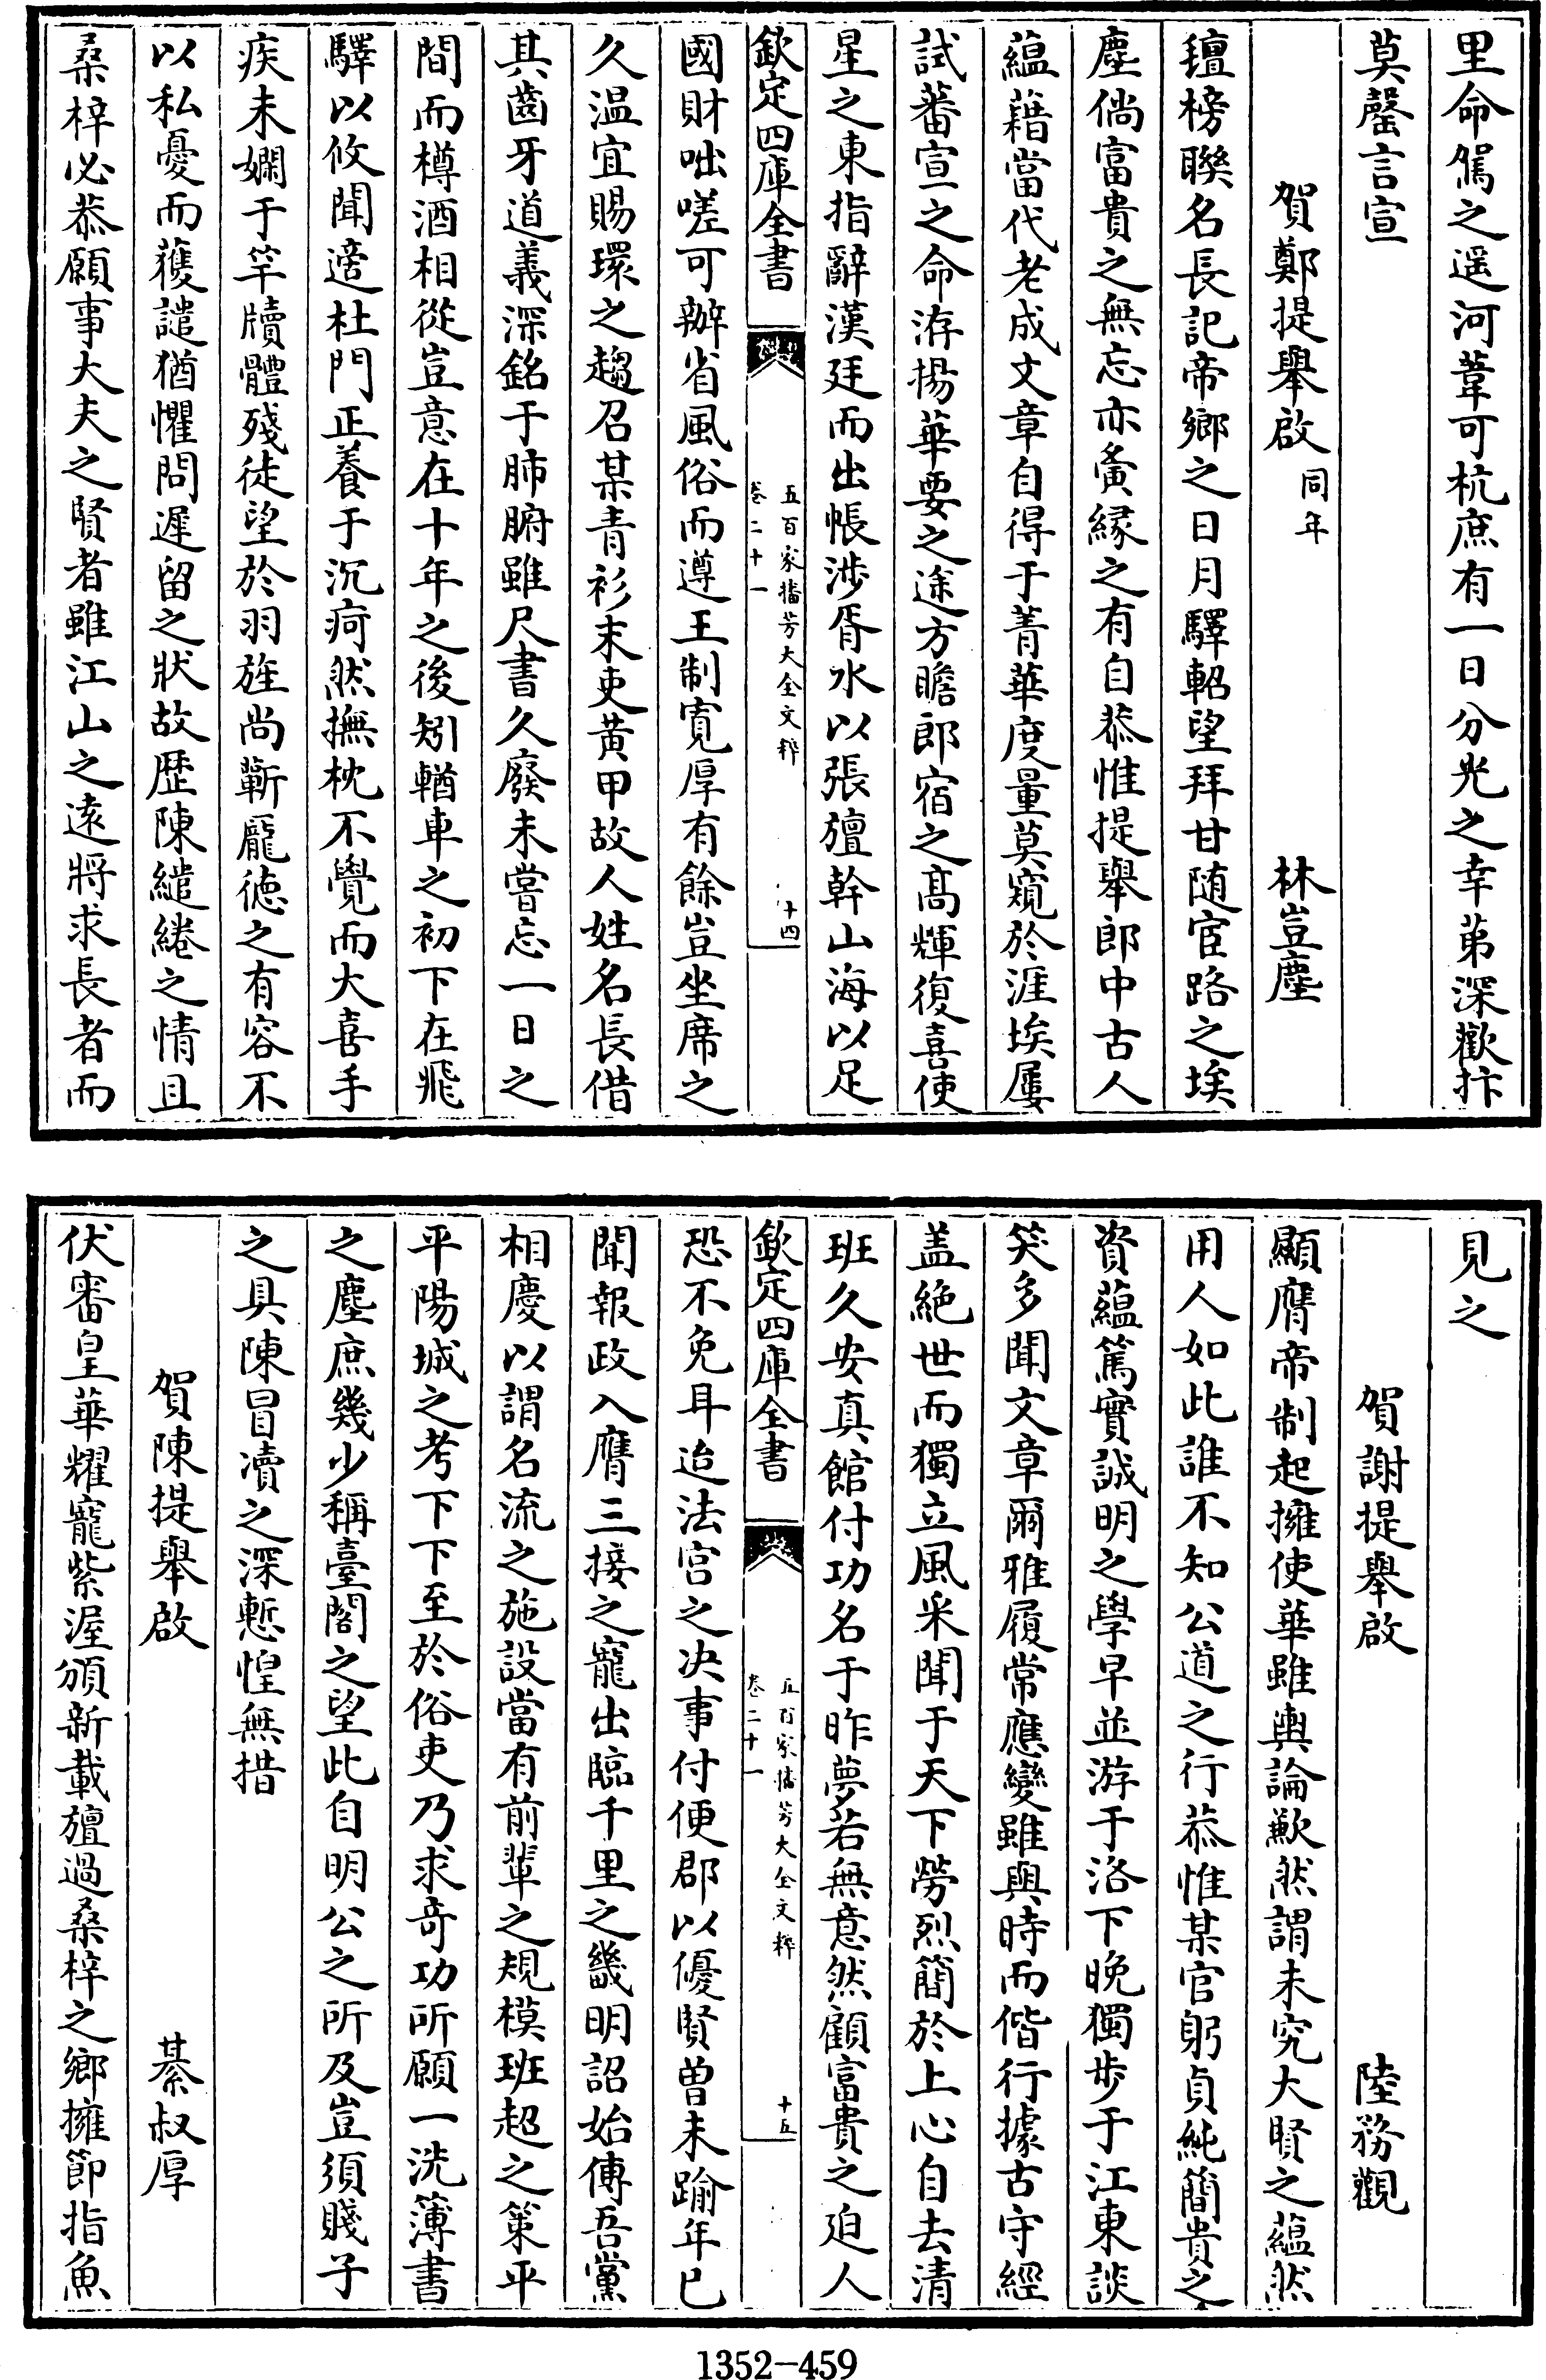 里命駕之遥河葦可杭庶有一日分光之幸苐深歡抃
莫罄言宣
賀鄭提舉啟同年　林豈塵
氊榜聯名長記帝鄉之日月驛軺望拜甘随宦路之埃
塵倘富貴之無忘亦夤緣之有自恭惟提舉郎中古人
蘊藉當代老成文章自得于菁華度量莫窺於涯埃屢
試蕃宣之命洊揚華要之途方瞻郎宿之髙輝復喜使
星之東指辭漢廷而出帳涉胥水以張旜幹山海以足
欽定四庫全書
五百家播芳大全文粹
卷二十一
十四
國財咄嗟可辦省風俗而遵王制寛厚有餘豈坐席之
久温宜賜環之趨召某青衫末吏黄甲故人姓名長借
其齒牙道義深銘于肺腑雖尺書久廢未嘗忘一日之
間而樽酒相從豈意在十年之後矧輶車之初下在飛
驛以攸聞適杜門正養于沉疴然撫枕不覺而大喜手
疾未嫻于竿牘體殘徒望於羽旌尚蘄龎德之有容不
以私憂而獲譴猶懼問遲留之狀故歴陳繾綣之情且
桑梓必恭願事大夫之賢者雖江山之逺將求長者而
見之
賀謝提舉啟　陸務觀
顯膺帝制起擁使華雖輿論歉然謂未究大賢之蘊然
用人如此誰不知公道之行恭惟某官躬貞純簡貴之
資蘊篤實誠明之學早並游于洛下晚獨步于江東談
笑多聞文章爾雅履常應變雖與時而偕行據古守經
盖絶世而獨立風采聞于天下勞烈簡於上心自去清
班久安真館付功名于昨夢若無意然顧富貴之廹人
欽定四庫全書
五百家播芳大全文粹
卷二十一
十五
恐不免耳迨法宫之决事付便郡以優賢曽未踰年已
聞報政入膺三接之寵出臨千里之畿明詔始傳吾黨
相慶以謂名流之施設當有前輩之規模班超之策平
平陽城之考下下至於俗吏乃求竒功所願一洗簿書
之塵庶幾少稱臺閣之望此自明公之所及豈須賤子
之具陳冒凟之深慙惶無措
賀陳提舉啟　綦叔厚
伏審皇華耀寵紫渥頒新載旜過桑梓之鄉擁節指魚
1352-459